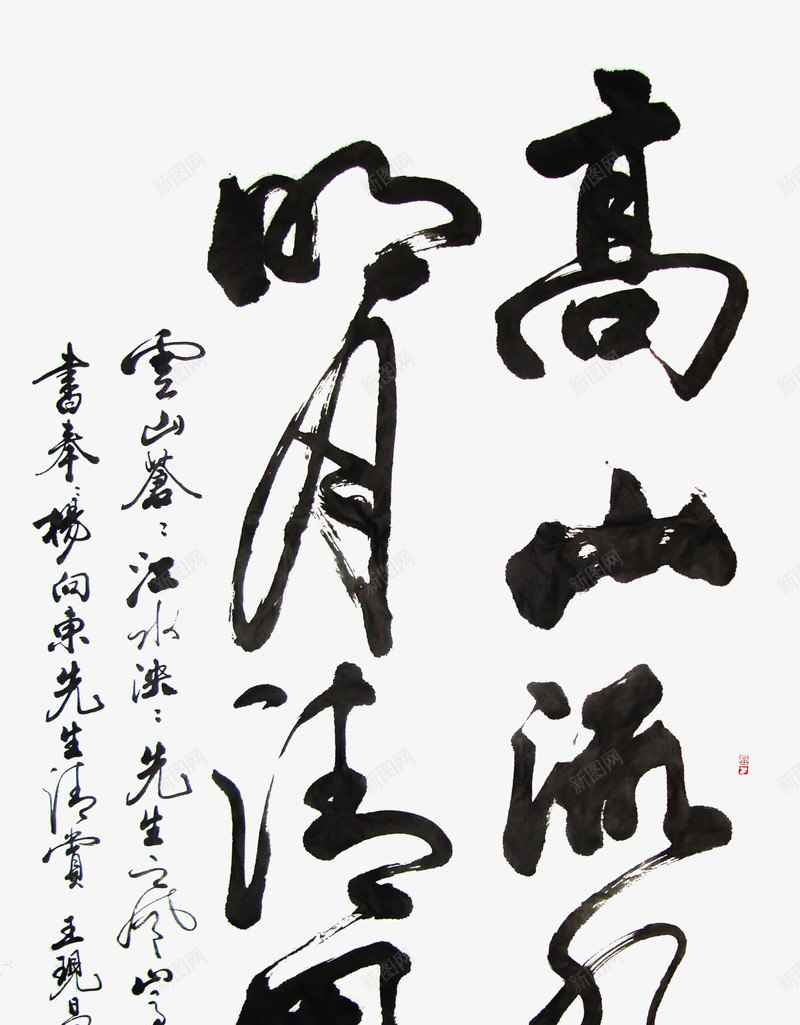 高山流水
明月清風
雲山蒼々江水泱々先生之風山高
書奉楊向東先生清賞 王現
新图网